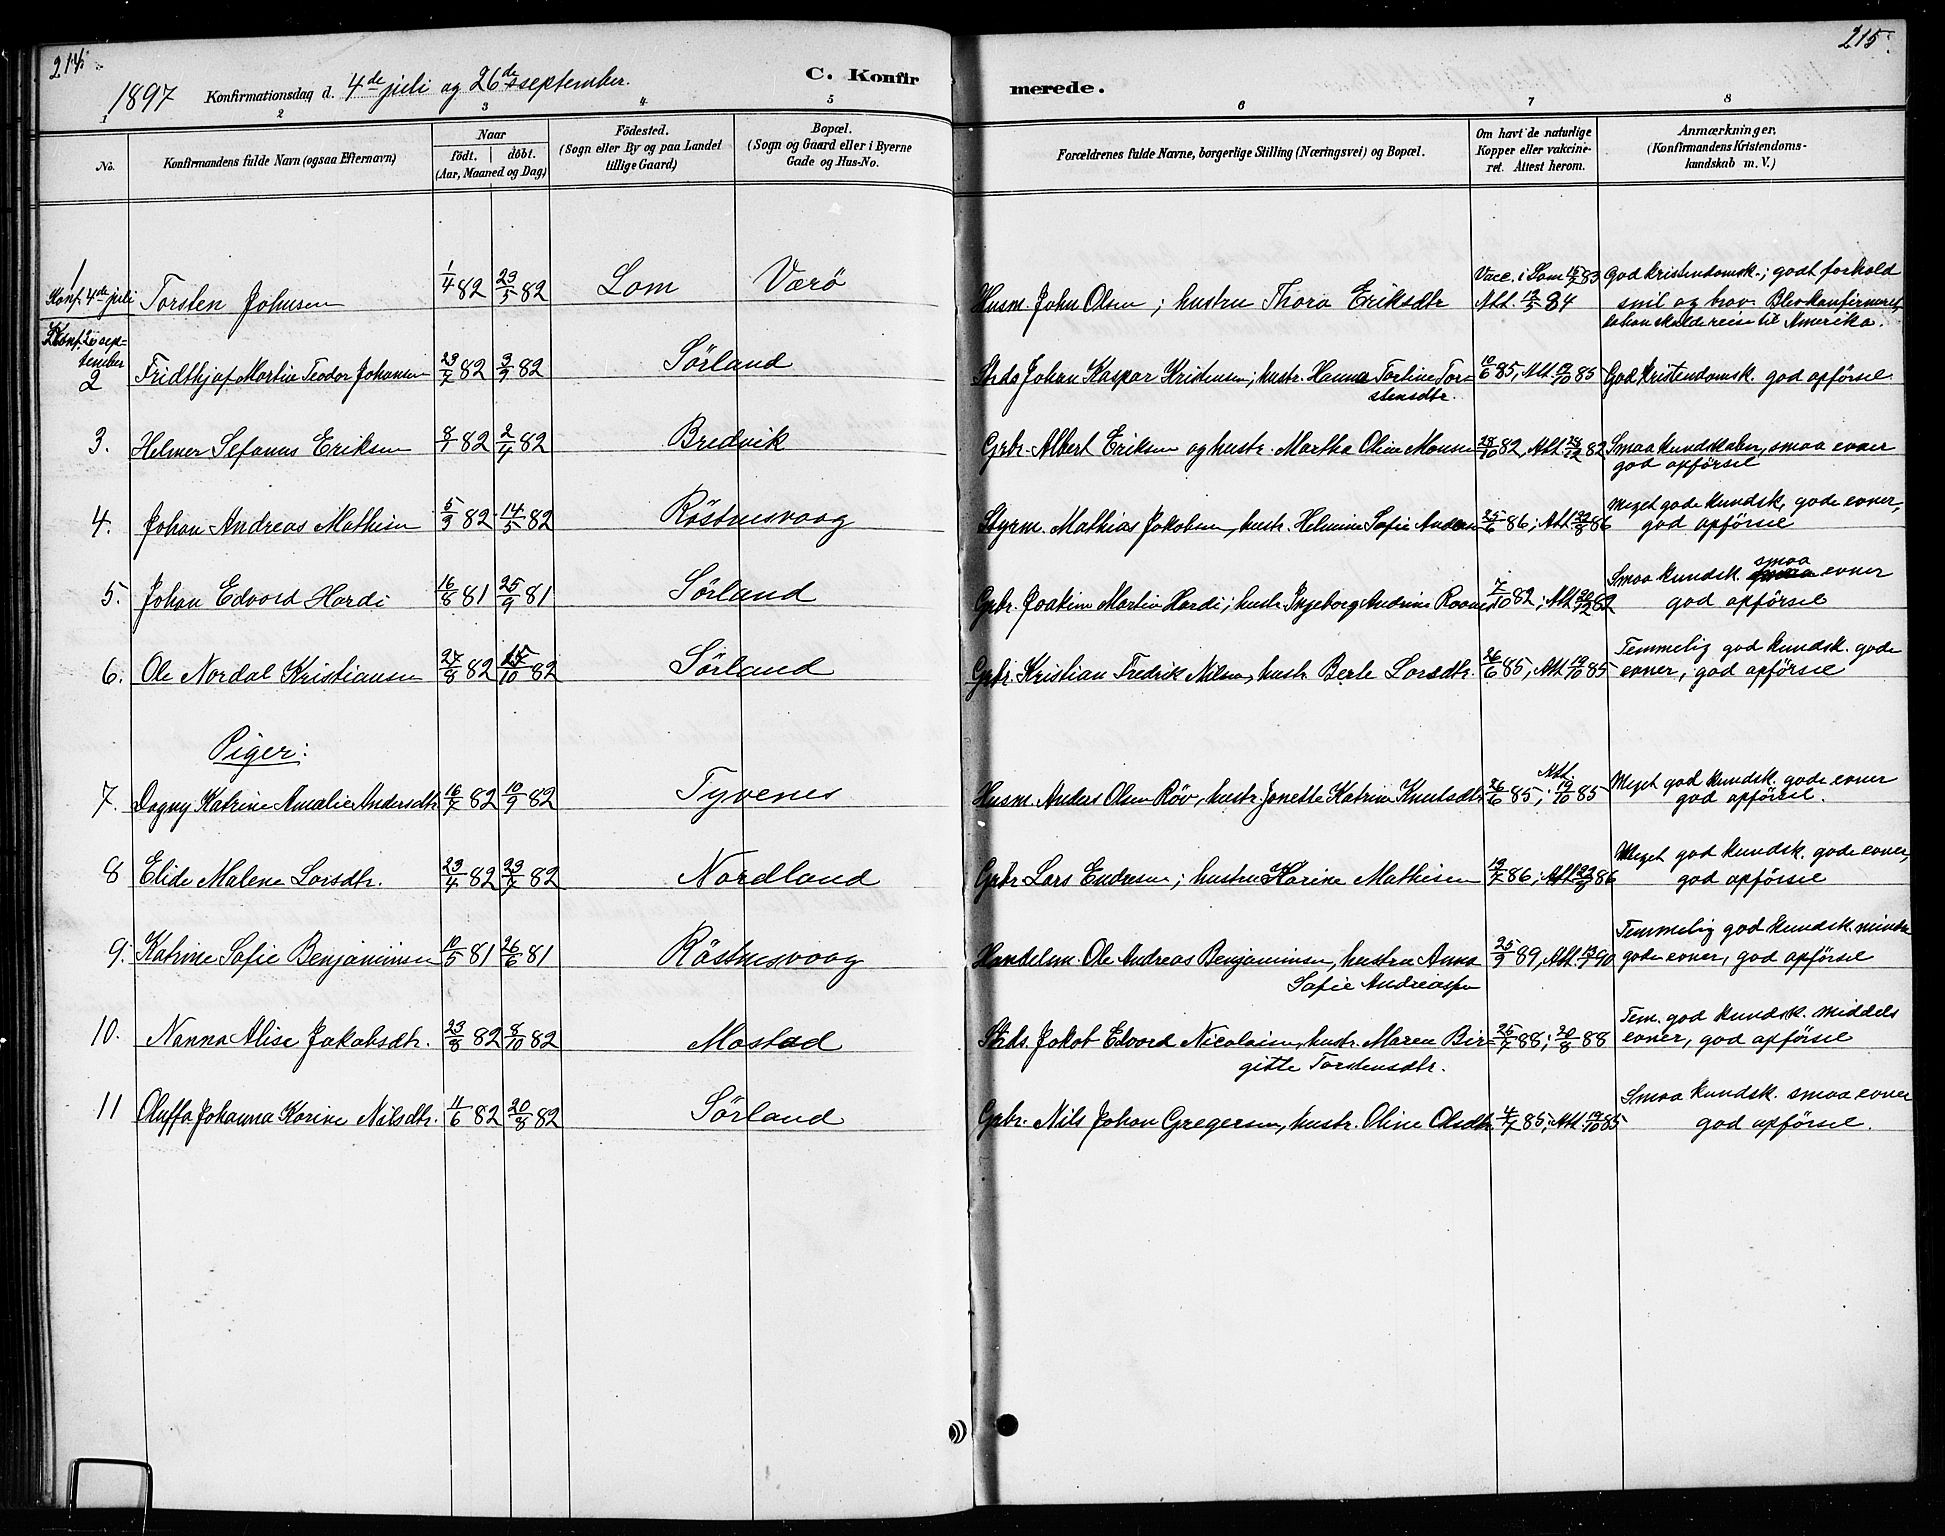 214.
215.
1897 Konfirmationsdag d. 4de juli og 26de september.
C. Konfirmerede.
1 2 3 4 5 6 7 8
No.
Konfirmandens fulde Navn (ogsaa Efternavn)
Naar
født. døbt.
(Aar, Maaned og Dag)
Fødested.
(Sogn eller By og paa Landet
tillige Gaard)
Bopæl.
(Sogn og Gaard eller i Byerne
Gade og Hus-No.
Forældrenes fulde Navne, borgerlige Stilling (Næringsvei) og Bopæl.
Om havt de naturlige
Kopper eller vakcine-
ret. Attest herom.
Anmærkninger,
(Konfirmandens Kristendoms-
kundskab m. V.)
1 Konf. 4de juli Torsten Johnsen 1/4 82 23/5 82 Lom Værö Husm. John Olsen; hustru Thora Eriksdtr Vacc. i Lom 83 Att. 84 God kristendomsk.; godt forhold
snil og brav. Blev konfirmeret,
da han skulde reise til Amerika.
Konf. 26 sep-
tember
2 Fridthjof Martin Teodor Johansen 23/7 82 3/9 82 Sörland Strds Johan Kaspar Kristensen; hustr. Hanna Torline Tor-
stensdtr. 19/6 85, Att. 19/10 85 God Kristendomsk. god opförsel
3. Helmer Sefanus Eriksen 8/1 82 2/4 82 Bredvik Grbr. Albert Eriksen og hustr. Martha Oline Monsen 28/10 82, Att. 28/12 82 Smaa kundskaber, smaa evner
god opförsel
4. Johan Andreas Mathisen 5/3 82 14/5 82 Röstnesvaag Styrm. Mathias Jakobsen, hustr. Helmine Sofie Andersen 25/6 86; Att. 22/8 86 Meget gode kundsk, gode evner,
god opförsel
5. Johan Edvard Hardi 16/8 81 25/9 81 Sörland Grbr. Joakim Martin Hardi; hustr. Ingeborg Andrine 7/10 82; Att. 20/12 82 Smaa kundsk. smaa evner
god opförsel
6. Ole Nordal Kristiansen 27/8 82 15/10 82 Sörland Grbr. Kristian Fredrik Nilsen, hustr. Berle Larsdtr. 26/6 85, Att. 19/10 85 Temmelig god kundsk. gode
evner, god opförsel
Piger:
7. Dagny Katrine Amalie Andersdtr 16/7 82 10/9 82 Tyvenes Husm. Anders Olsen Röv, hustr. Jonette Katrine Knutsdtr 26/6 85; Att. 19/10 85 Meget god kundsk. gode evner
god opförsel.
8 Elide Malene Larsdtr. 23/4 82 23/7 82 Nordland Grbr Lars Endresen; hustru Karine Mathisen 19/7 86; Att. 22/8 86 Meget god kundsk. gode evner,
god opförsel
9. Katrine Sofie Benjaminsen 10/5 81 26/6 81 Röstnesvaag Handelsm. Ole Andreas Benjaminsen, hustru Anna
Sofie Andreasen 25/9 89, Att. 90 Temmelig god kundsk. mindre
gode evner, god opförsel
10. Nanna Alise Jakobsdtr. 23/8 82 8/10 82 Mostad Strds. Jakob Edvard Nicolaisen, hustr. Maren Bir-
gitte Torstensdtr. 25/7 88; 20/8 88 Tem. god kundsk. middels
evner, god opförsel
11 Oluffa Johanna Karine Nilsdtr. 11/6 82 20/8 82 Sörland Grbr. Nils Johan Gregersen, hustr. Oline Olsdtr. 4/7 85; Att. 19/10 85 Smaa kundsk. smaa evner
god opförsel.